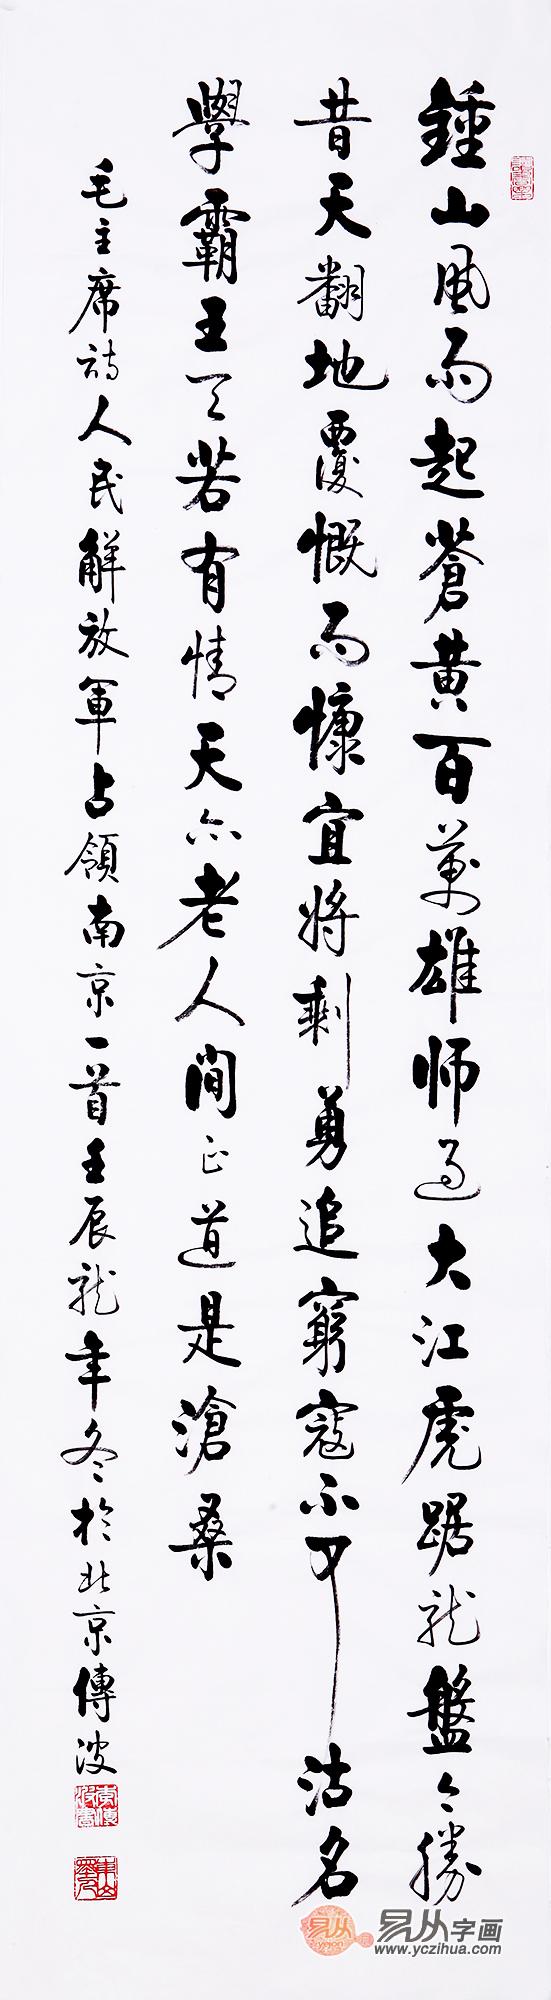 鍾山風雨起蒼黃百萬雄師過大江虎踞龍盤今勝
昔天翻地覆慨而慷宜將剩勇追窮寇不可沽名
學霸王天若有情天亦老人間正道是滄桑
毛主席詩人民解放軍占領南京一首壬辰龍年冬於北京傳波
易从
易从字画
www.yczihua.com